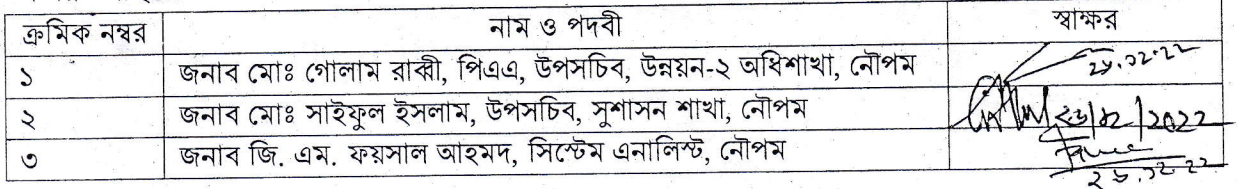 ক্রমিক নম্বর নাম ও পদবী স্বাক্ষর
১ জনাব মোঃ গোলাম রাব্বী, পিএএ, উপসচিব, উন্নয়ন-২ অধিশাখা, নৌপম
২ জনাব মোঃ সাইফুল ইসলাম, উপসচিব, সুশাসন শাখা, নৌপম
৩ জনাব জি. এম. ফয়সাল আহমদ, সিস্টেম এনালিস্ট, নৌপম